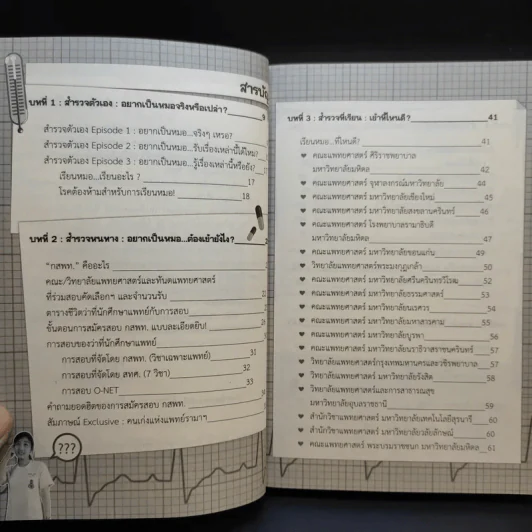 สารบัญ
บทที่ 1 : สำรวจตัวเอง : อยากเป็นหมอจริงหรือเปล่า?
สำรวจตัวเอง Episode 1 : อยากเป็นหมอ...จริงๆ เหรอ?
สำรวจตัวเอง Episode 2 : อยากเป็นหมอ...รับเรื่องเหล่านี้ได้ไหม?
สำรวจตัวเอง Episode 3 : อยากเป็นหมอ...รู้เรื่องเหล่านี้หรือยัง?
เรียนหมอ...เรียนอะไร ? 17
โรคต้องห้ามสำหรับการเรียนหมอ! 18
บทที่ 2 : สำรวจหนทาง : อยากเป็นหมอ...ต้องเข้ายังไง?
"กสพท." คืออะไร
คณะ/วิทยาลัยแพทยศาสตร์และทันตแพทยศาสตร์
ที่ร่วมสอบคัดเลือกฯ และจำนวนรับ
ตารางชีวิตว่าที่นักศึกษาแพทย์กับการสอบ
ขั้นตอนการสมัครสอบ กสพท. แบบละเอียดยิบ!
การสอบของว่าที่นักศึกษาแพทย์
การสอบที่จัดโดย กสพท. (วิชาเฉพาะแพทย์) 31
การสอบที่จัดโดย สทศ. (7 วิชา) 32
การสอบ O-NET 33
คำถามยอดฮิตของการสมัครสอบ กสพท.
สัมภาษณ์ Exclusive : คนเก่งแห่งแพทย์รามาฯ
???
บทที่ 3 : สำรวจที่เรียน : เข้าที่ไหนดี? 41
เรียนหมอ...ที่ไหนดี? 41
♥ คณะแพทยศาสตร์ ศิริราชพยาบาล
มหาวิทยาลัยมหิดล 42
♥ คณะแพทยศาสตร์ จุฬาลงกรณ์มหาวิทยาลัย 44
♥ คณะแพทยศาสตร์ มหาวิทยาลัยเชียงใหม่ 45
♥ คณะแพทยศาสตร์ มหาวิทยาลัยสงขลานครินทร์ 46
♥ คณะแพทยศาสตร์ โรงพยาบาลรามาธิบดี
มหาวิทยาลัยมหิดล 47
♥ คณะแพทยศาสตร์ มหาวิทยาลัยขอนแก่น 49
♥ วิทยาลัยแพทยศาสตร์พระมงกุฎเกล้า 50
♥ คณะแพทยศาสตร์ มหาวิทยาลัยศรีนครินทรวิโรฒ 52
♥ คณะแพทยศาสตร์ มหาวิทยาลัยธรรมศาสตร์ 53
♥ คณะแพทยศาสตร์ มหาวิทยาลัยนเรศวร 54
♥ คณะแพทยศาสตร์ มหาวิทยาลัยมหาสารคาม 55
♥ คณะแพทยศาสตร์ มหาวิทยาลัยบูรพา 56
♥ คณะแพทยศาสตร์ มหาวิทยาลัยนราธิวาสราชนครินทร์ 57
♥ วิทยาลัยแพทยศาสตร์กรุงเทพมหานครและวชิรพยาบาล 57
♥ วิทยาลัยแพทยศาสตร์ มหาวิทยาลัยรังสิต 58
♥ วิทยาลัยแพทยศาสตร์และการสาธารณสุข
มหาวิทยาลัยอุบลราชธานี 59
♥ สำนักวิชาแพทยศาสตร์ มหาวิทยาลัยเทคโนโลยีสุรนารี 60
♥ สำนักวิชาแพทยศาสตร์ มหาวิทยาลัยวลัยลักษณ์ 60
♥ คณะแพทยศาสตร์ พระบรมราชชนก มหาวิทยาลัยมหิดล 61